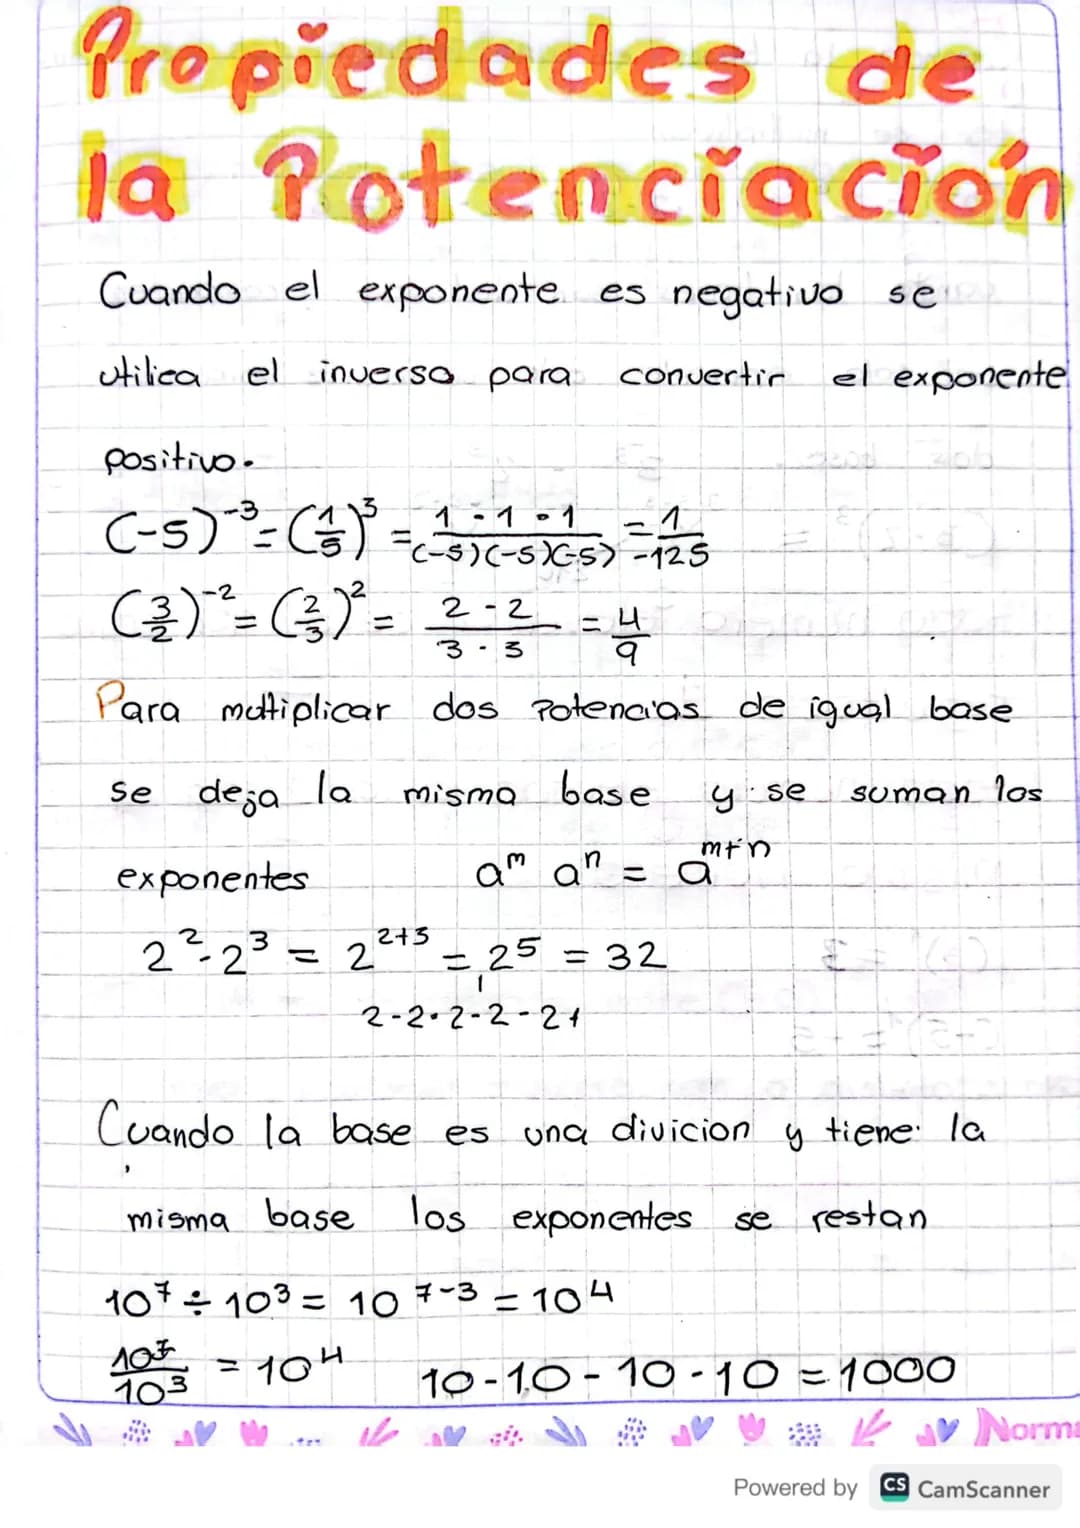 Propiedades de
la Potenciación
Cuando el exponente es negativo se
utilica el inverso para convertir el exponente
positivo.
(-5)⁻³ = (1/5)³ = 1 · 1 · 1 / (-5)(-5)(-5) = 1/-125
(3/2)⁻² = (2/3)² = 2 · 2 / 3 · 3 = 4/9
Para multiplicar dos Potencias de igual base
se deja la misma base y se suman los
exponentes aᵐ aⁿ = aᵐ⁺ⁿ
2² · 2³ = 2²⁺³ = 2⁵ = 32
2·2·2·2·2
Cuando la base es una divicion y tiene la
misma base los exponentes se restan
10⁷ ÷ 10³ = 10⁷⁻³ = 10⁴
10⁷/10³ = 10⁴ 10·10·10·10 = 1000
Norma
Powered by CS CamScanner